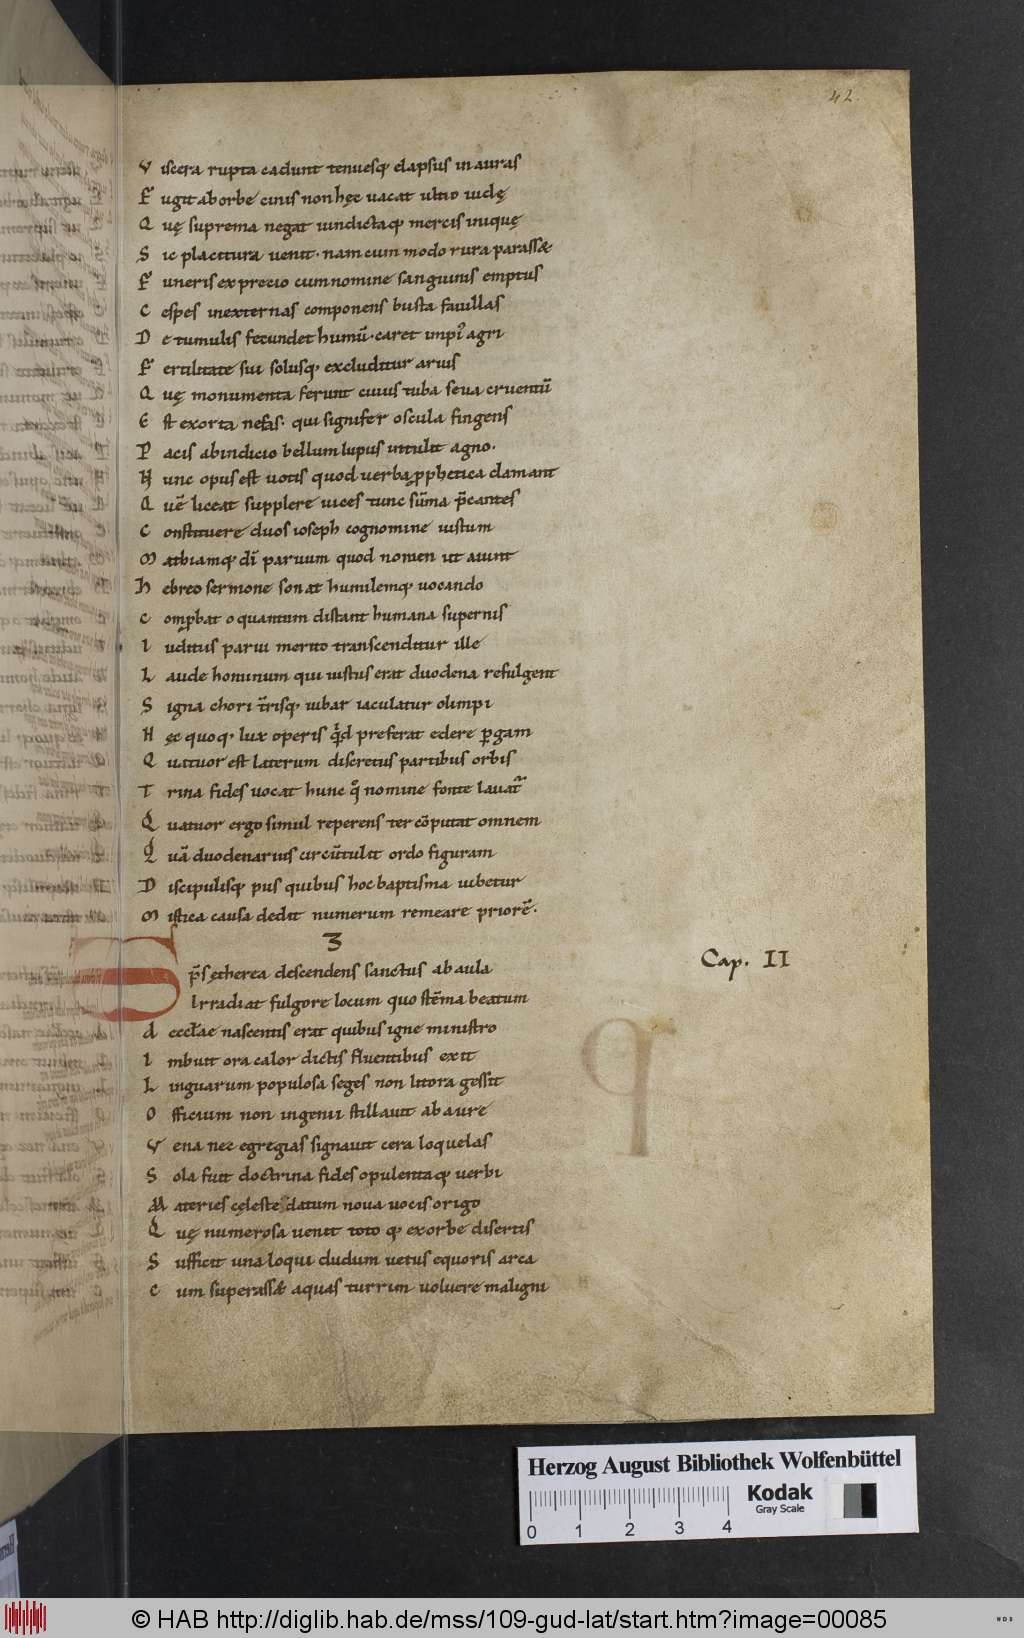 42.
V iscera rupta cadunt tenuesq; elapsus in auras
F ugit ab orbe cinis non hęc uacat ultio iudę
Q uę suprema negat uindictaq; mercis iniquę
S ic placitura uenit. nam cum modo rura parass&
F uneris ex precio cum nomine sanguinis emptus
C espes inexternas componens busta fauillas
D e tumulis fecundet humū. caret impi' agri
F ertilitate sui solusq; excluditur arius
Q uę monumenta ferunt cuius tuba seua cruentū
E st exorta nefas. qui signifer oscula fingens
P acis ab indicio bellum lupus intulit agno.
H unc opus est uotis quod uerba pphetica clamant
Q uē liceat supplere uices tunc sūma p̄cantes
C onstituere duos ioseph cognomine iustum
M athiamq; dī paruum quod nomen ut aiunt
h ebreo sermone sonat humilemq; uocando
C omp̱bat o quantum distant humana supernis
I uditus parui merito transcenditur ille
L aude hominum qui iustus erat duodena refulgent
S igna chori t̄risq; iubar iaculatur olimpi
H ęc quoq; lux operis qd preferat edere p̱gam
Q uatuor est laterum discretus partibus orbis
T rina fides uocat hunc q̊ nomine fonte lauat̄
Q uatuor ergo simul reperens ter cōputat omnem
Q uā duodenarius circūtulit ordo figuram
D iscipulisq; pus quibus hoc baptisma iubetur
M istica causa dedit numerum remeare priorē.
3
S p̄s ętherea descendens sanctus ab aula
Irradiat fulgore locum quo stēma beatum
Cap. II
d eccl̄ae nascentis erat quibus igne ministro
I mbuit ora calor dictis fluentibus exit
L inguarum populosa seges non litora gessit
O fficium non ingenii stillauit ab aure
V ena nec egregias signauit cera loquelas
S ola fuit doctrina fides opulentaq; uerbi
M ateries cęleste datum noua uocis origo
Q uę numerosa uenit toto q; ex orbe disertis
S ufficit una loqui dudum uetus equoris arca
C um superass& aquas turrim uoluere maligni
Herzog August Bibliothek Wolfenbüttel
Kodak
Gray Scale
0 1 2 3 4
© HAB http://diglib.hab.de/mss/109-gud-lat/start.htm?image=00085